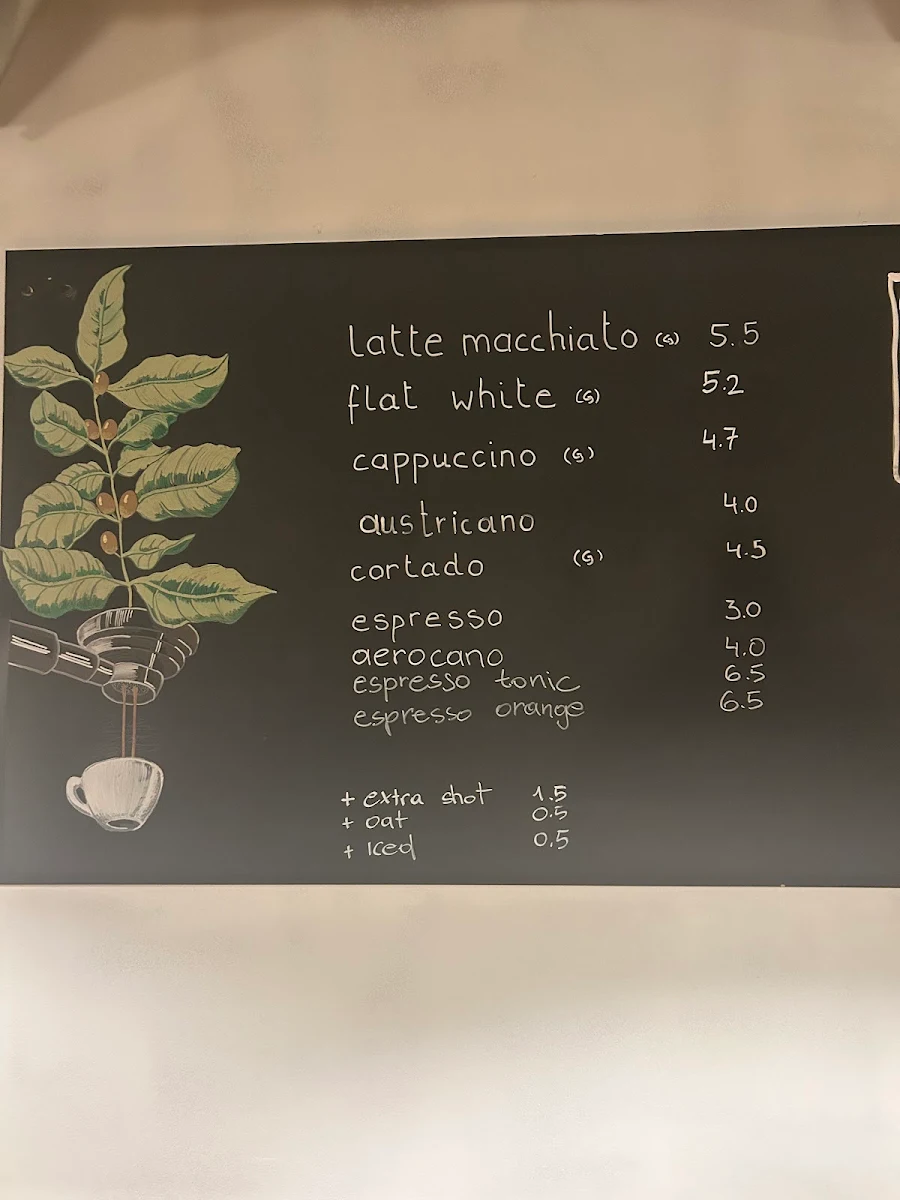 latte macchiato (G) 5.5
flat white (G) 5.2
cappuccino (G) 4.7
austricano 4.0
cortado (G) 4.5
espresso 3.0
aerocano 4.0
espresso tonic 6.5
espresso orange 6.5
+ extra shot 1.5
+ oat 0.5
+ iced 0.5